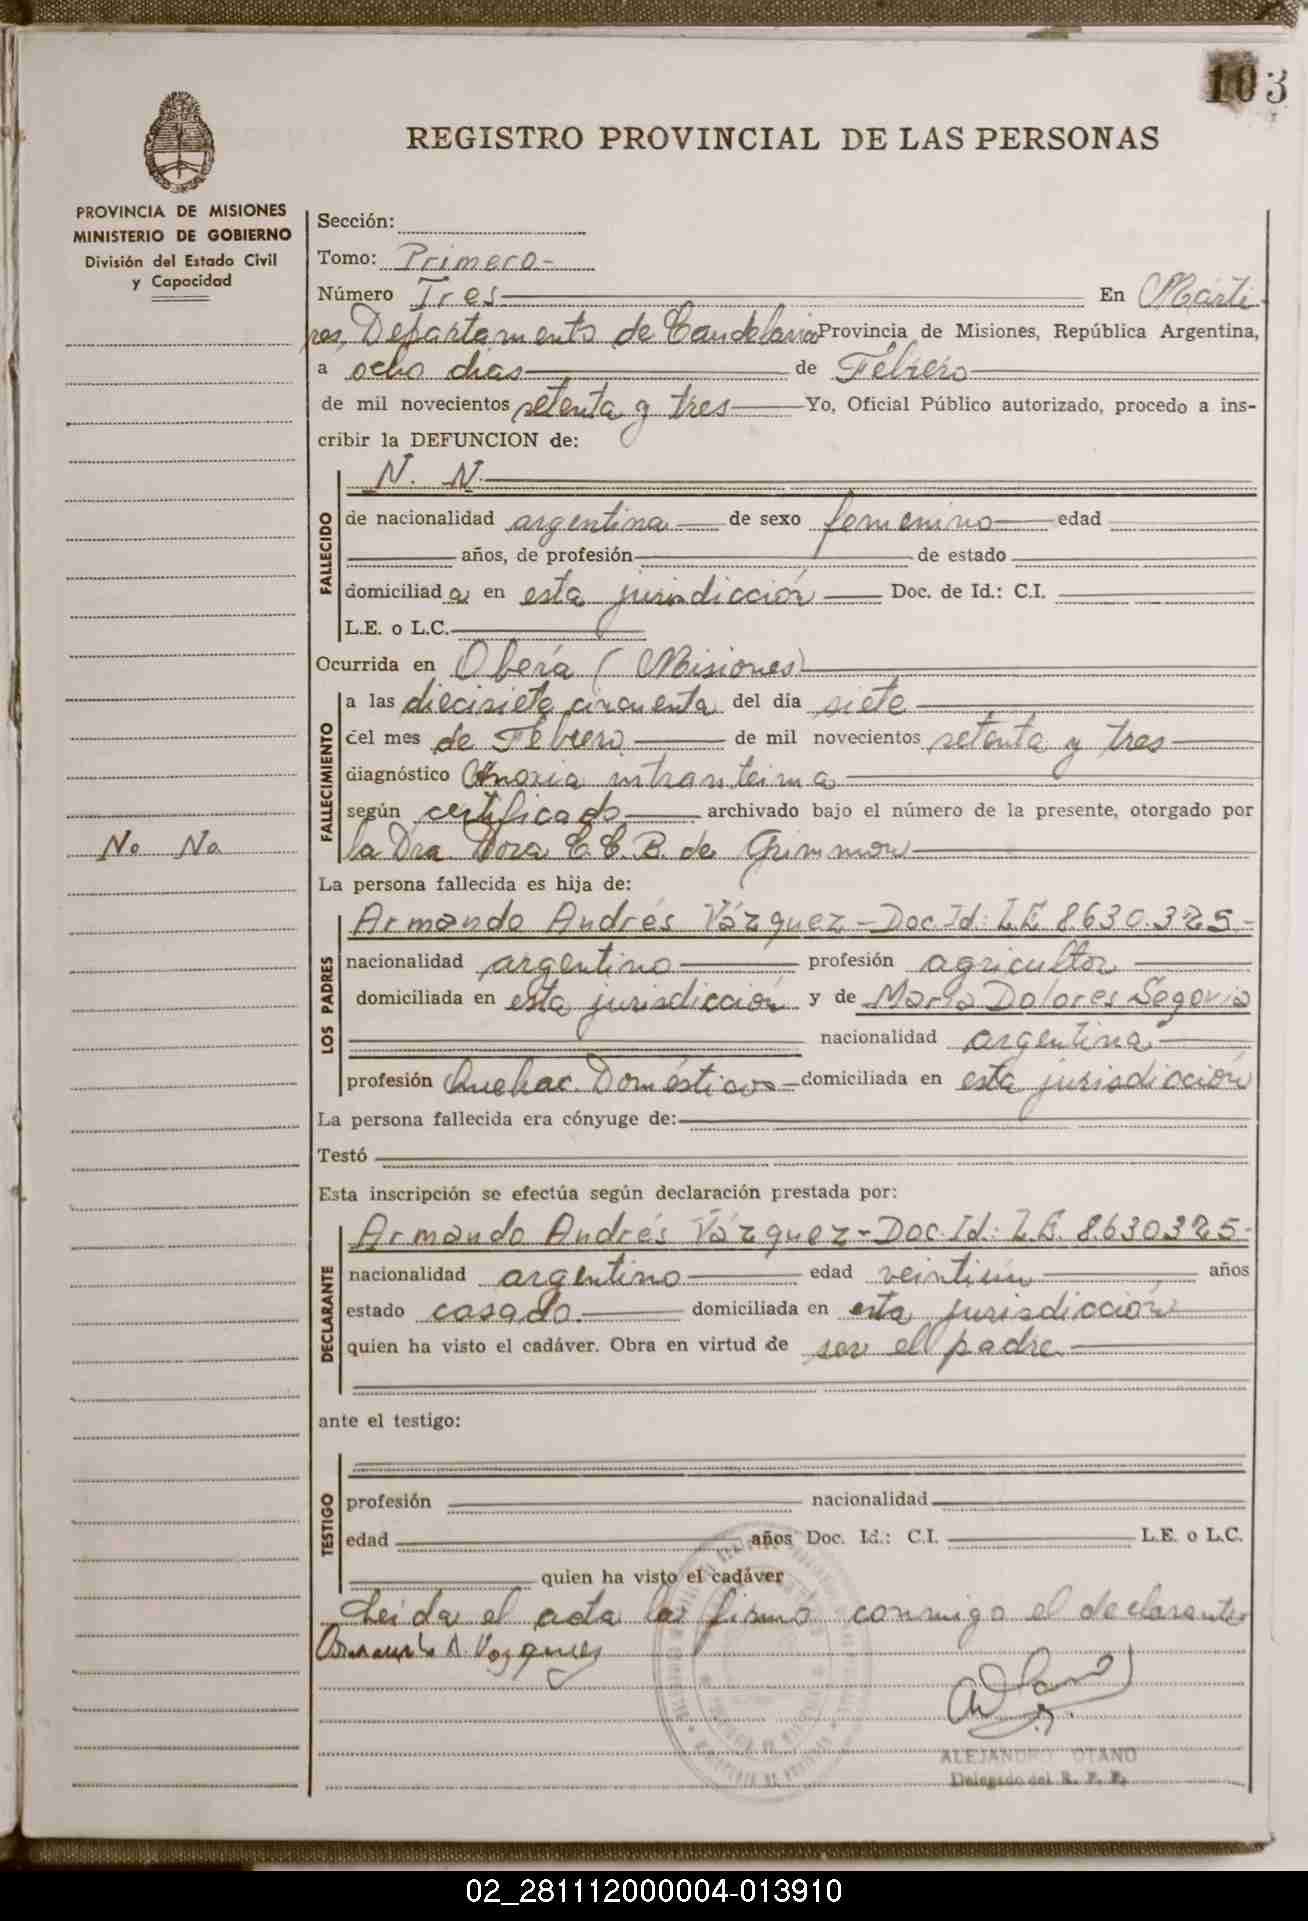 103
REGISTRO PROVINCIAL DE LAS PERSONAS
PROVINCIA DE MISIONES
MINISTERIO DE GOBIERNO
División del Estado Civil
y Capacidad
Sección:
Tomo: Primero-
Número Tres En Márti
res, Departamento de Candelaria Provincia de Misiones, República Argentina,
a ocho días de Febrero
de mil novecientos setenta y tres Yo, Oficial Público autorizado, procedo a ins-
cribir la DEFUNCION de:
N. N.
FALLECIDO
de nacionalidad argentina de sexo femenino edad
años, de profesión de estado
domiciliad a en esta jurisdicción Doc. de Id.: C.I.
L.E. o L.C.
Ocurrida en Oberá (Misiones)
FALLECIMIENTO
a las diecisiete cincuenta del día siete
del mes de Febrero de mil novecientos setenta y tres
diagnóstico Anoxia
según certificado archivado bajo el número de la presente, otorgado por
N. N.
la Dra. Dora E. E. B. de
La persona fallecida es hija de:
LOS PADRES
Armando Andrés Vázquez - Doc. Id: L.E. 8.630.325-
nacionalidad argentino profesión agricultor
domiciliada en esta jurisdicción y de María Dolores Segovia
nacionalidad argentina
profesión Quehac. Domésticos domiciliada en esta jurisdicción
La persona fallecida era cónyuge de:
Testó
Esta inscripción se efectúa según declaración prestada por:
DECLARANTE
Armando Andrés Vázquez - Doc. Id: L.E. 8.630325-
nacionalidad argentino edad veintiún años
estado casado. domiciliada en esta jurisdicción
quien ha visto el cadáver. Obra en virtud de ser el padre
ante el testigo:
TESTIGO
profesión nacionalidad
edad años Doc. Id.: C.I. L.E. o L.C.
quien ha visto el cadáver
Leída el acta la firmó conmigo el declarante
Armando A. Vazquez
ALEJANDRO OTANO
Delegado del R. P. P.
02_281112000004-013910